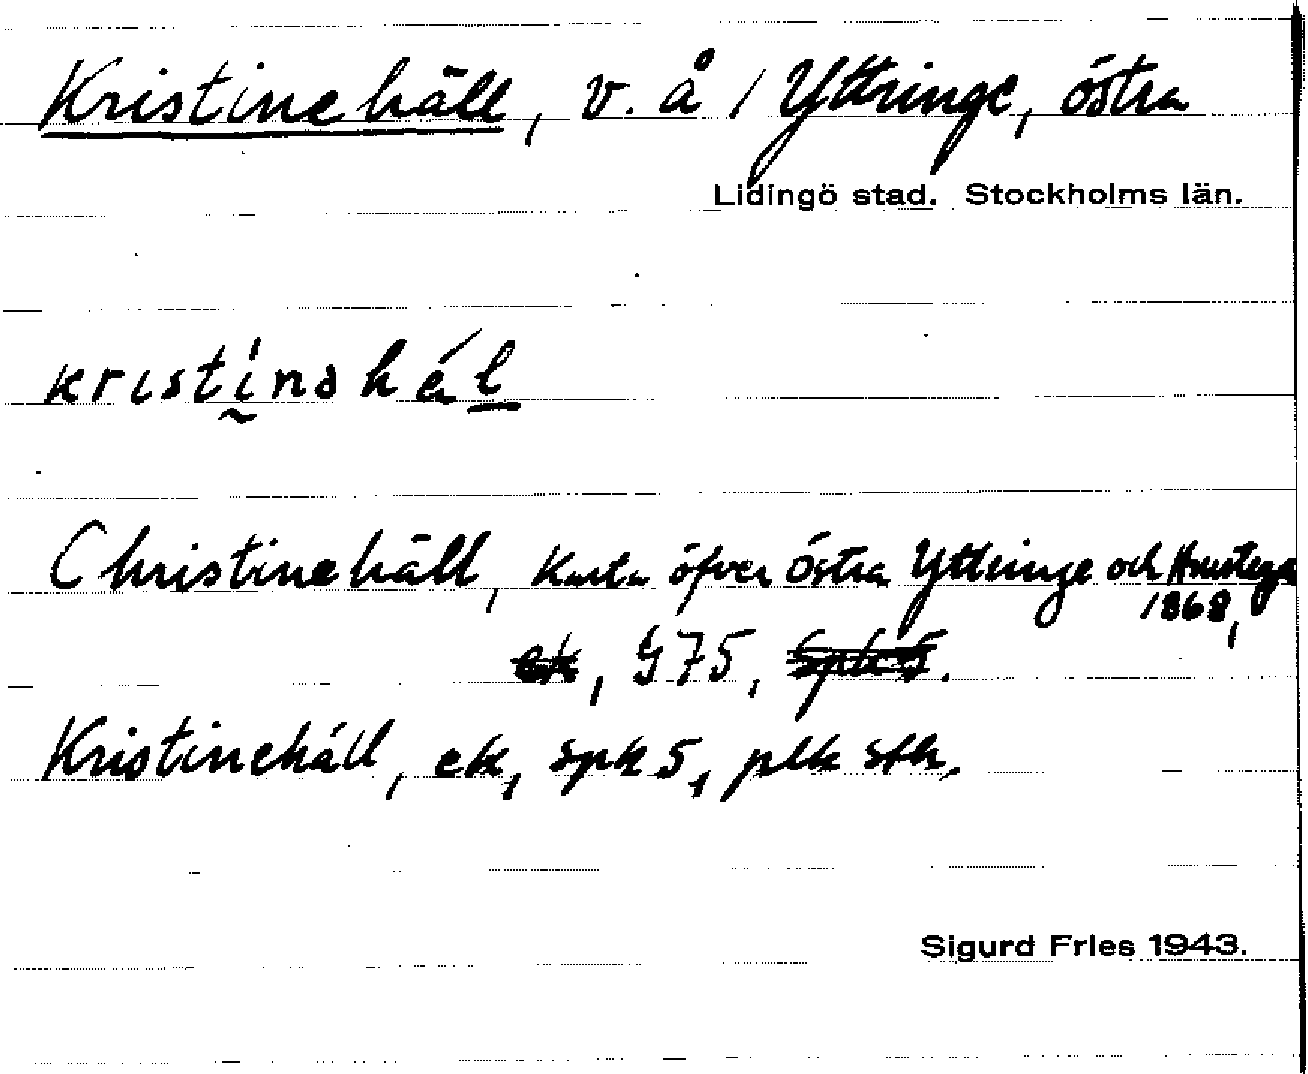 Kristinehäll, v. å / Yttringe, östra
Lidingö stad. Stockholms län.
kristinəhäl
Christinehäll, Karta öfver Östra Yttringe och Hustega
1868,
ek, Y75, spk 5.
Kristinehäll, ek, spk 5, plk sth.
Sigurd Fries 1943.